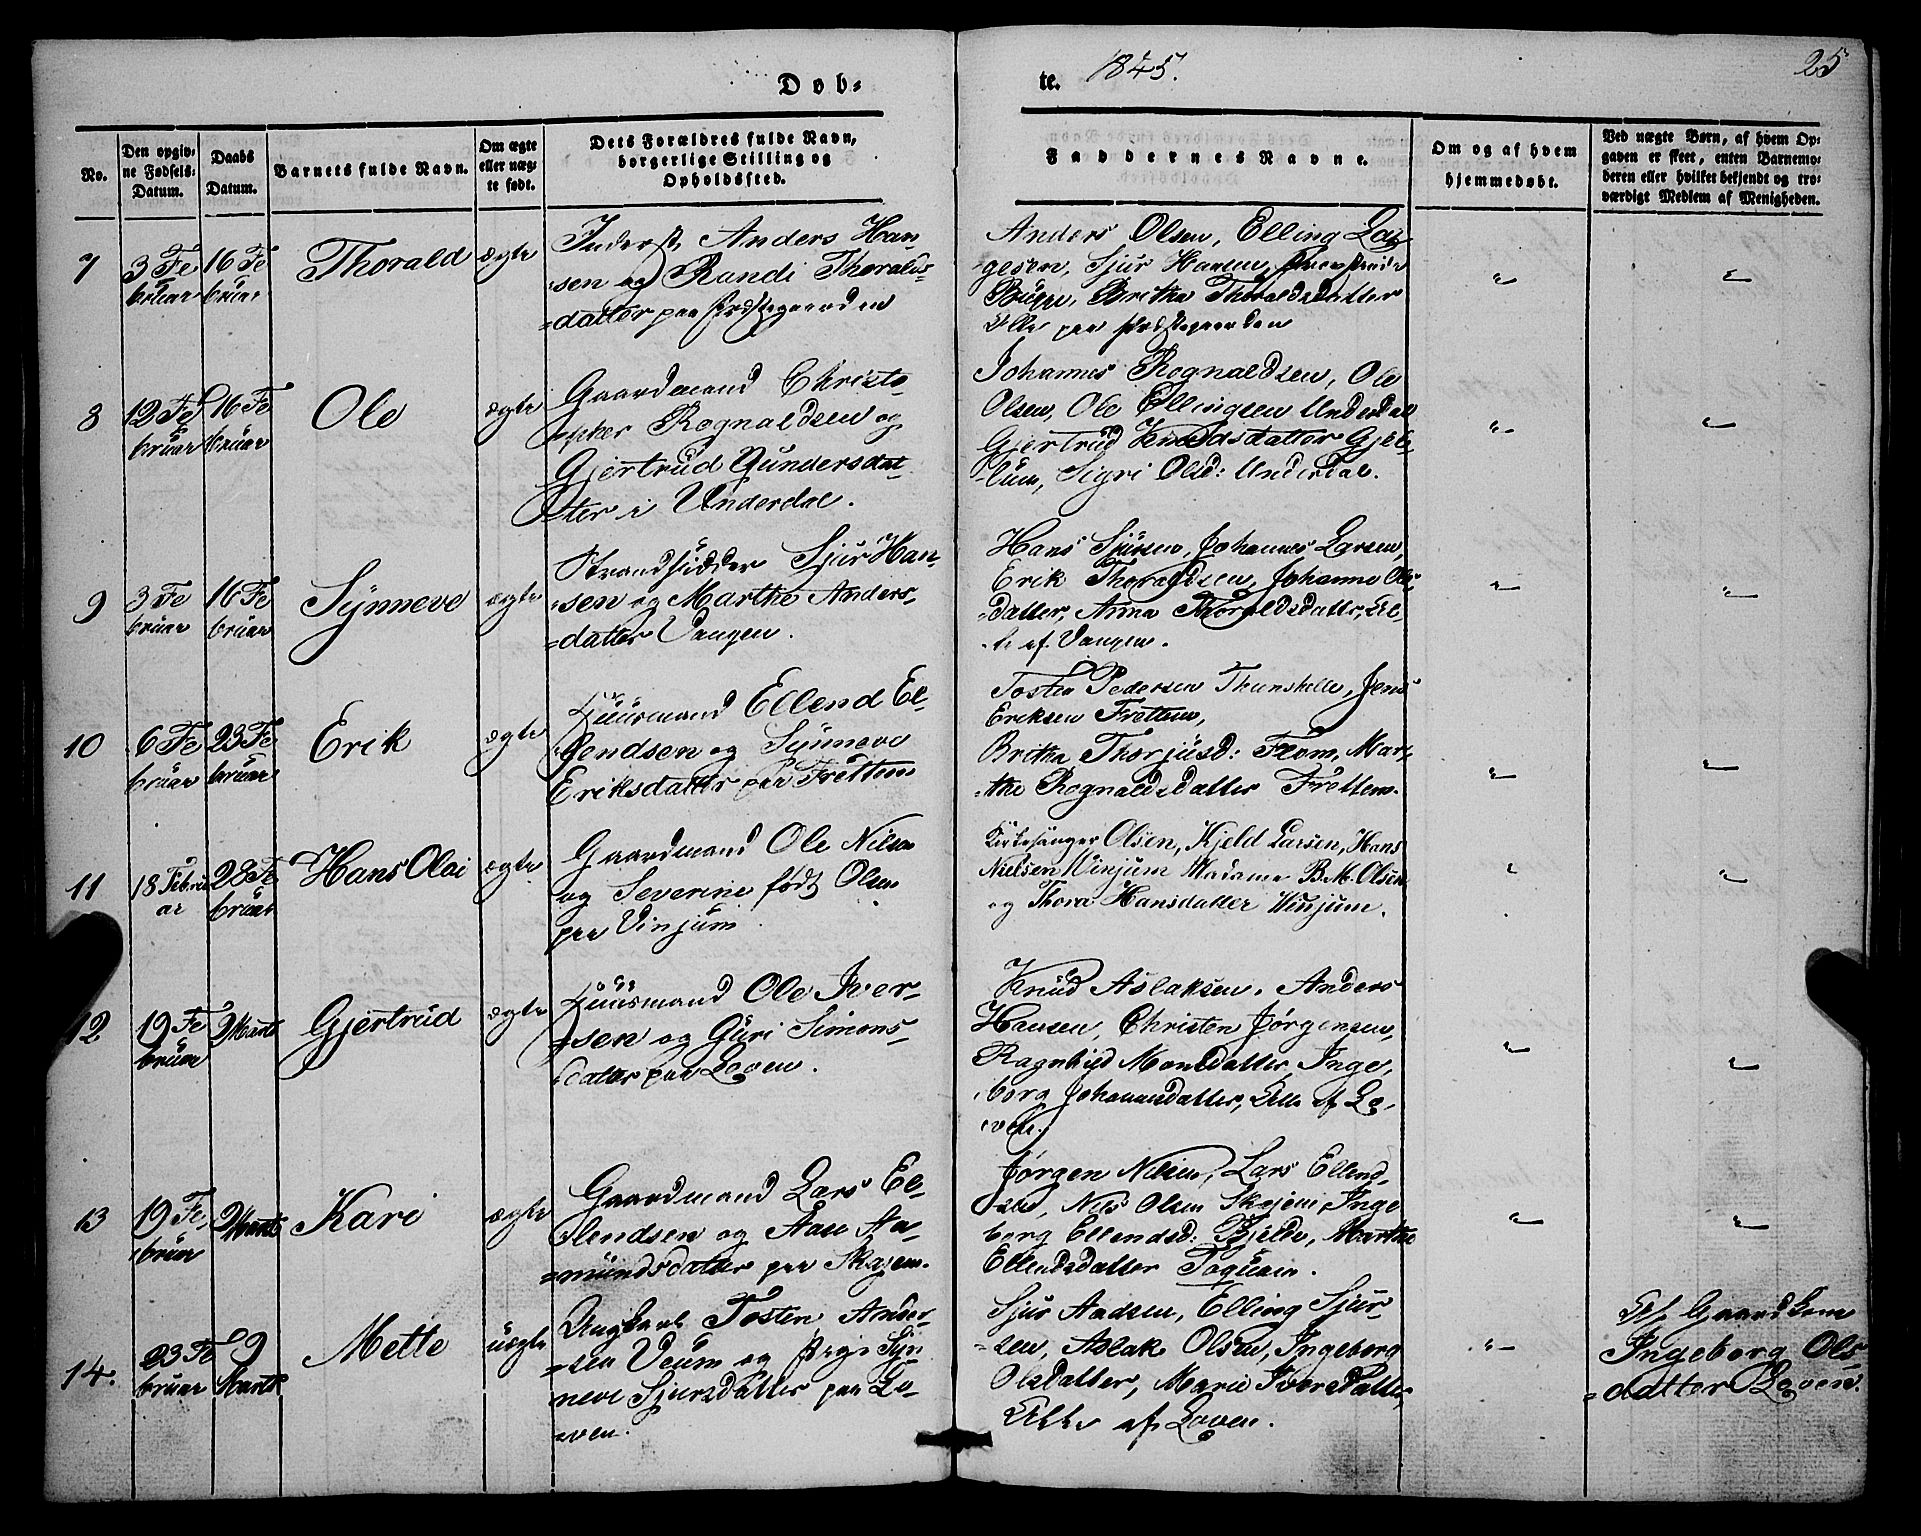 Døb-
te. 1845.
25
No.
Den opgiv-
ne Fødsels-
Datum.
Daabs
Datum.
Barnets fulde Navn.
Om ægte
eller uæg-
te født.
Dets Forældres fulde Navn,
borgerlige Stilling og
Opholdssted.
Faddernes Navne.
Om og af hvem
hjemmedøbt.
Ved uægte Børn, af hvem Op-
gaven er skeet, enten Barnemo-
deren eller hvilket bekjendt og tro-
værdigt Medlem af Menigheden.
7
3 Fe
bruar
16 Fe
bruar
Thorald
ægte
Inderst Anders Han-
sen og Randi Thoralds-
=datter paa Præstegaarden
Anders Olsen, Elling La
gesen, Sjur Hansen,
Britha Thoraldsdatter
Alle paa Præstegaarden
8
12 Fe
bruar
16 Fe
bruar
Ole
ægte
Gaardmand Christo
=pher Rognaldsen og
Gjertrud Gundersdat
=ter i Underdal.
Johannes Rognaldsen, Ole
Olsen, Ole Ellingsen Underdal
Gjertrud Knudsdatter Gjel-
=lum, Sigri Olsd: Underdal.
9
3 Fe
bruar
16 Fe
bruar
Synneve
ægte
Strandsidder Sjur Han-
=sen og Marthe Anders-
=datter Vangen.
Hans Sjursen, Johannes Larsen,
Erik Thoraldsen, Johanna Ols-
=datter, Anna Thoraldsdatter, Al-
le af Vangen.
10
6 Fe
bruar
23 Fe
bruar
Erik
ægte
Huusmand Ellend El-
lendsen og Synneve
Eriksdatter paa Frettem
Tosten Pedersen Thunshelle, Jens
Eriksen Frettem,
Britha Thorjusd: Flom, Mar-
=the Rognaldsdatter Frettem.
11
18 Febru
ar
28 Fe
bruar
Hans Olai
ægte
Gaardmand Ole Nilsen
og Severine født Olsen
paa Vinjum.
Kirkesanger Olsen, Kjeld Larsen, Hans
Nielsen Vinjum Madame B. M. Olsen
og Thora Hansdatter Winjum.
12
19 Fe
bruar
2 Marts
Gjertrud
ægte
Huusmand Ole Iver-
=sen og Guri Simons-
datter paa Loven.
Knud Aslaksen, Anders
Hansen, Christen Jørgensen,
Ragnhild Monsdatter, Inge-
borg Johannesdatter, Alle af Lo-
ven.
13
19 Fe,
bruar
2 Marts
Kari
ægte
Gaardmand Lars El-
lendsen og Aase Aa-
=mundsdatter paa Skajem.
Jørgen Nilsen, Lars Ellend
sen, Nils Olsen Skajem, Inge
borg Ellendsd: Bjelde, Marthe
Ellendsdatter
14.
23 Fe
bruar
9
Marts
Mette
uægte
Ungkarl Tosten Ander-
=sen Veum og Pige Syn
neve Sjursdatter paa Lo-
=ven.
Sjur Aadsen, Elling Sjur-
=sen, Aslak Olsen, Ingeborg
Olsdatter, Marie Iversdatter,
Alle af Loven.
Af Gaardkone
Ingeborg Ols-
=datter Loven.